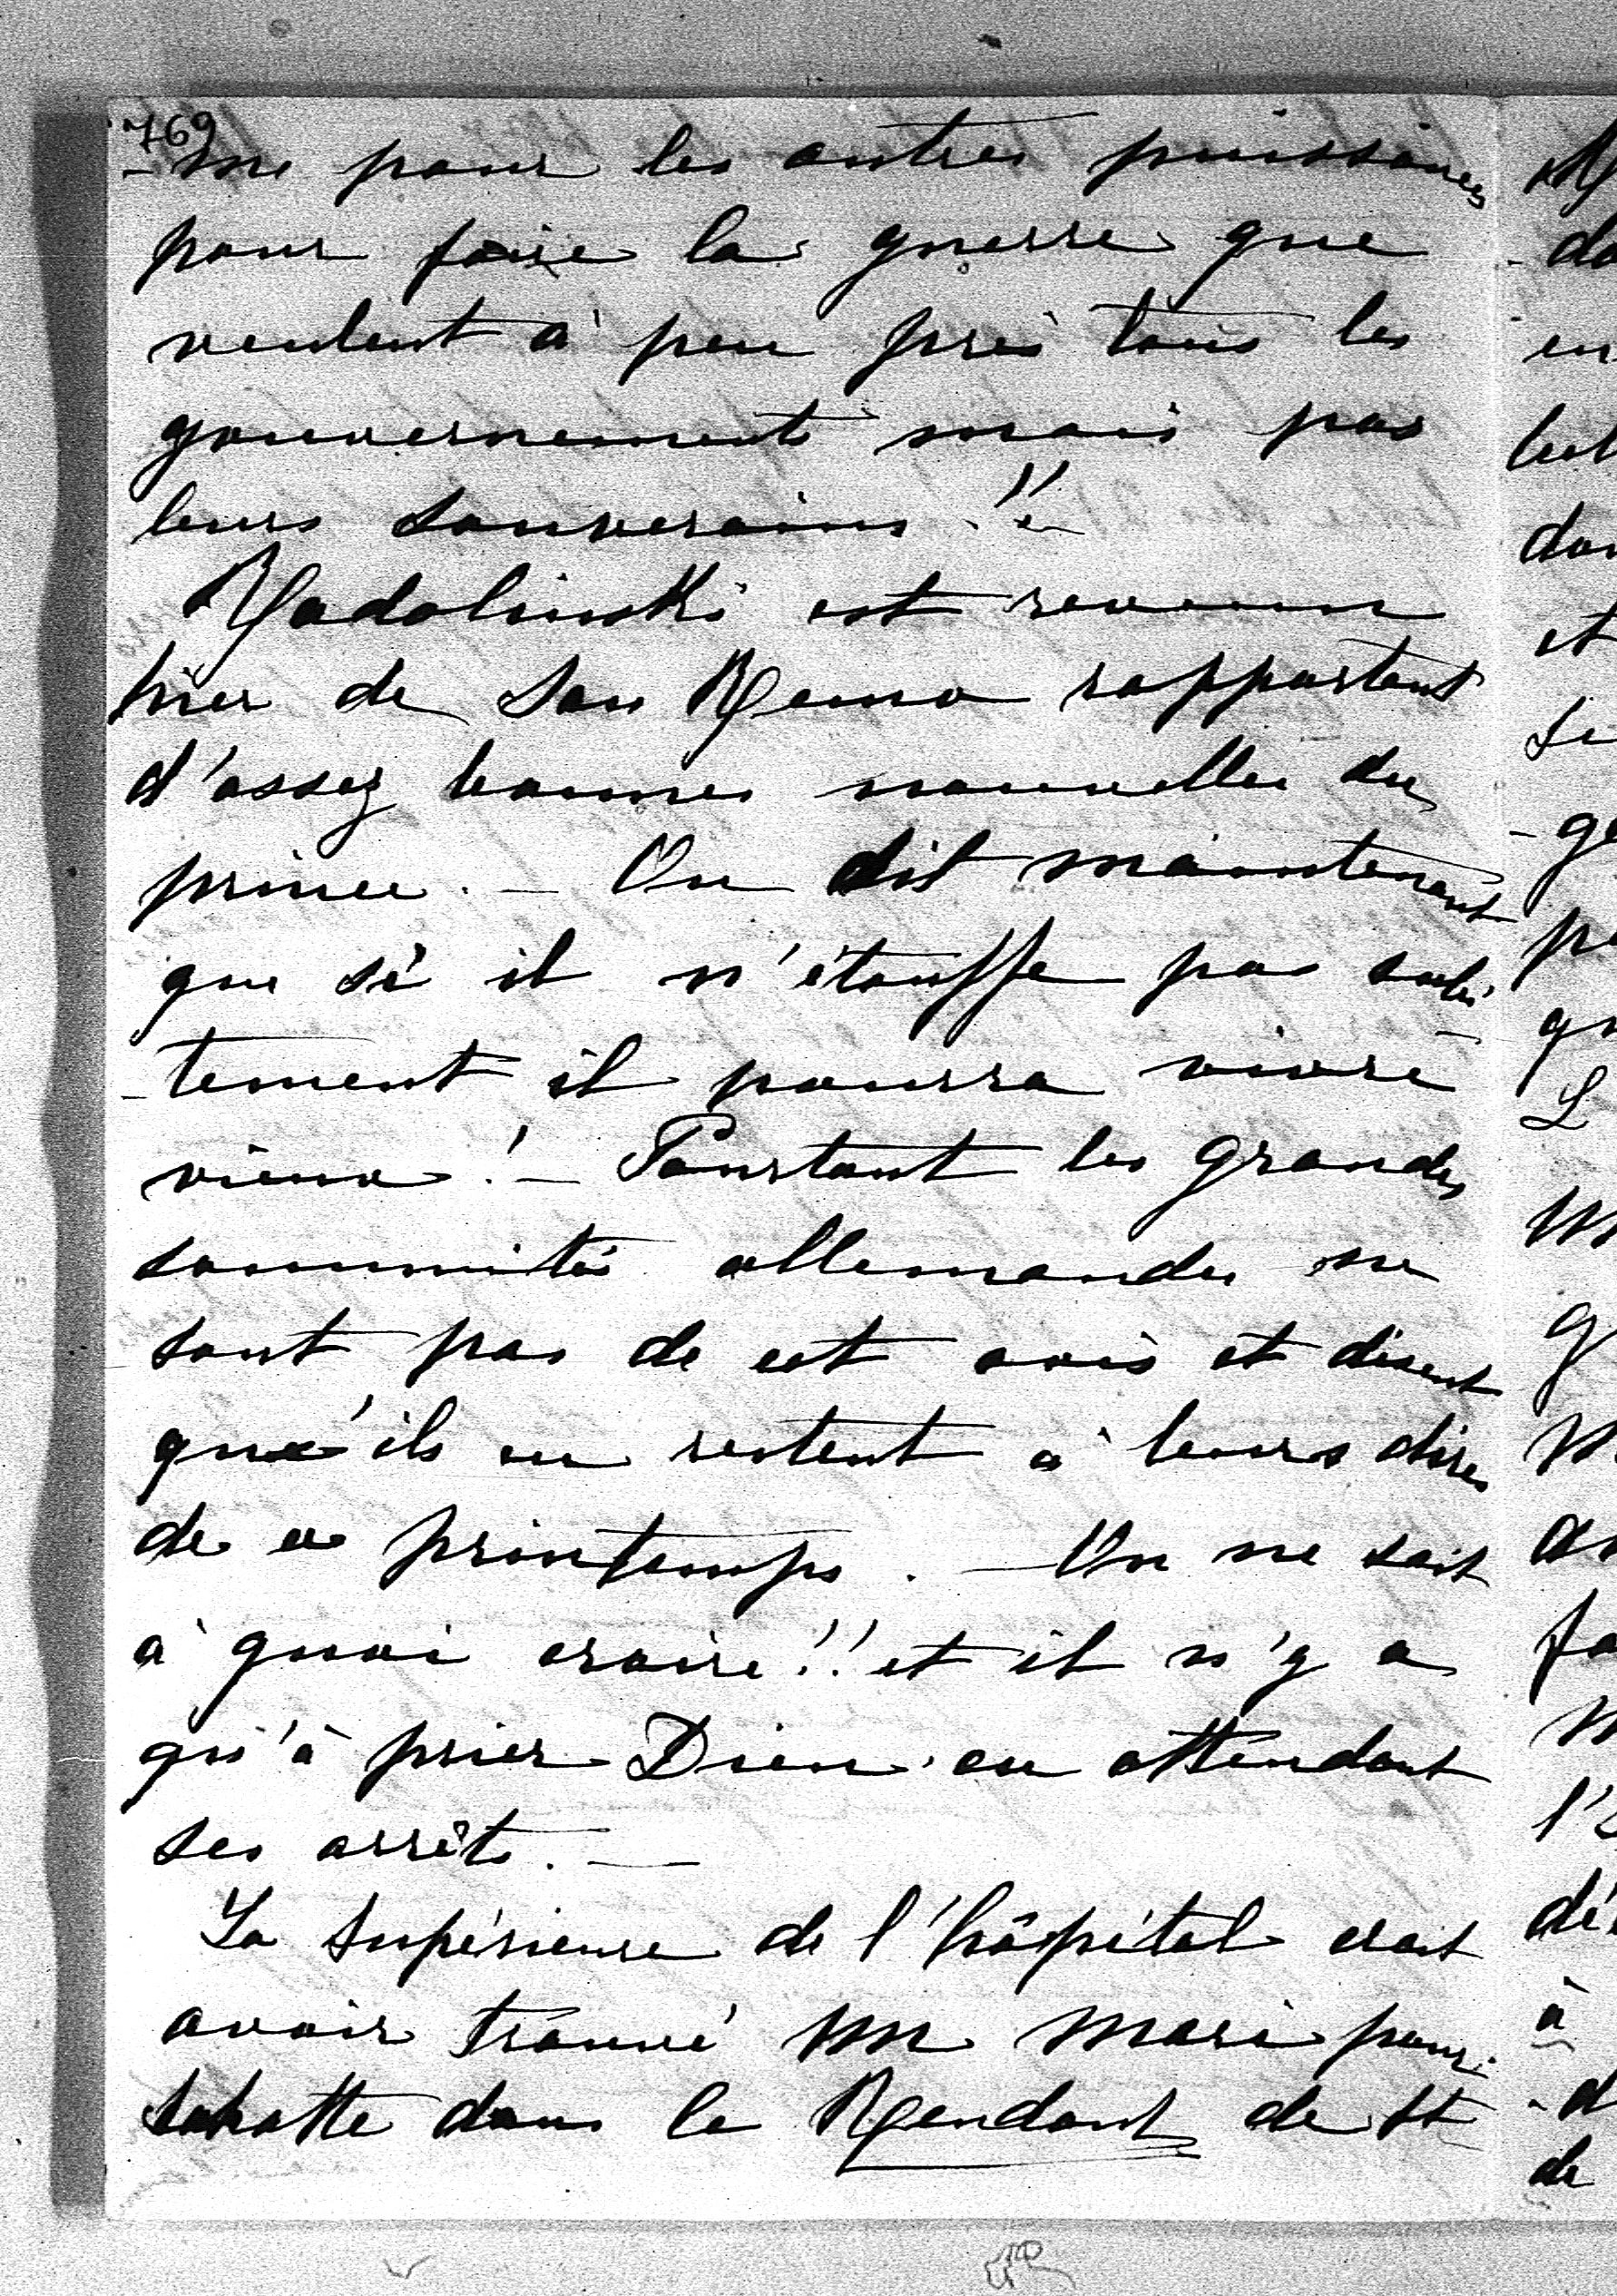 769
-me pour les autres puissances
pour faire la guerre que
veulent à peu près tous les
gouvernements mais pas
leurs souverains !!
Radolinski est revenu
hier de San Remo rapportant
d'assez bonnes nouvelles du
prince. - On dit maintenant
que si il n'étouffe pas subi-
-tement il pourra vivre
vieux ! - Pourtant les grandes
sommités allemandes ne
sont pas de cet avis et disent
qu'ils en restent à leurs dires
de ce printemps. - On ne sait
à quoi croire !! et il n'y a
qu'à prier Dieu en attendant
ses arrêts. -
La Supérieure de l'hôpital croit
avoir trouvé un mari pour
dans le Rendant de St